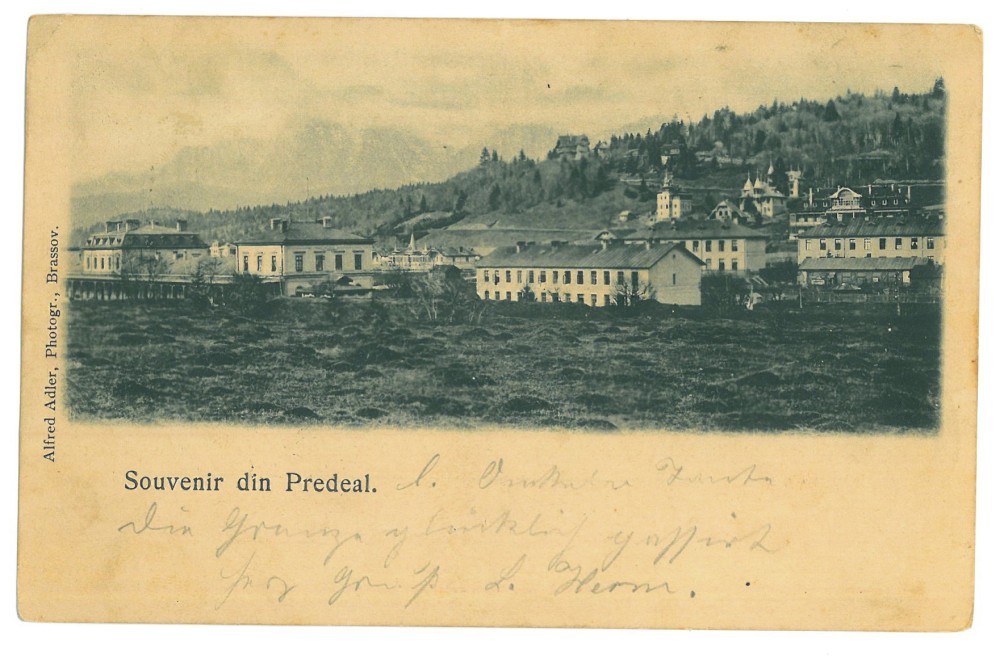 Alfred Adler, Photogr., Brassov.
Souvenir din Predeal.
l. Onkel u Tante
Die Grenze glücklich passirt
Herz Gruß L. Herm.